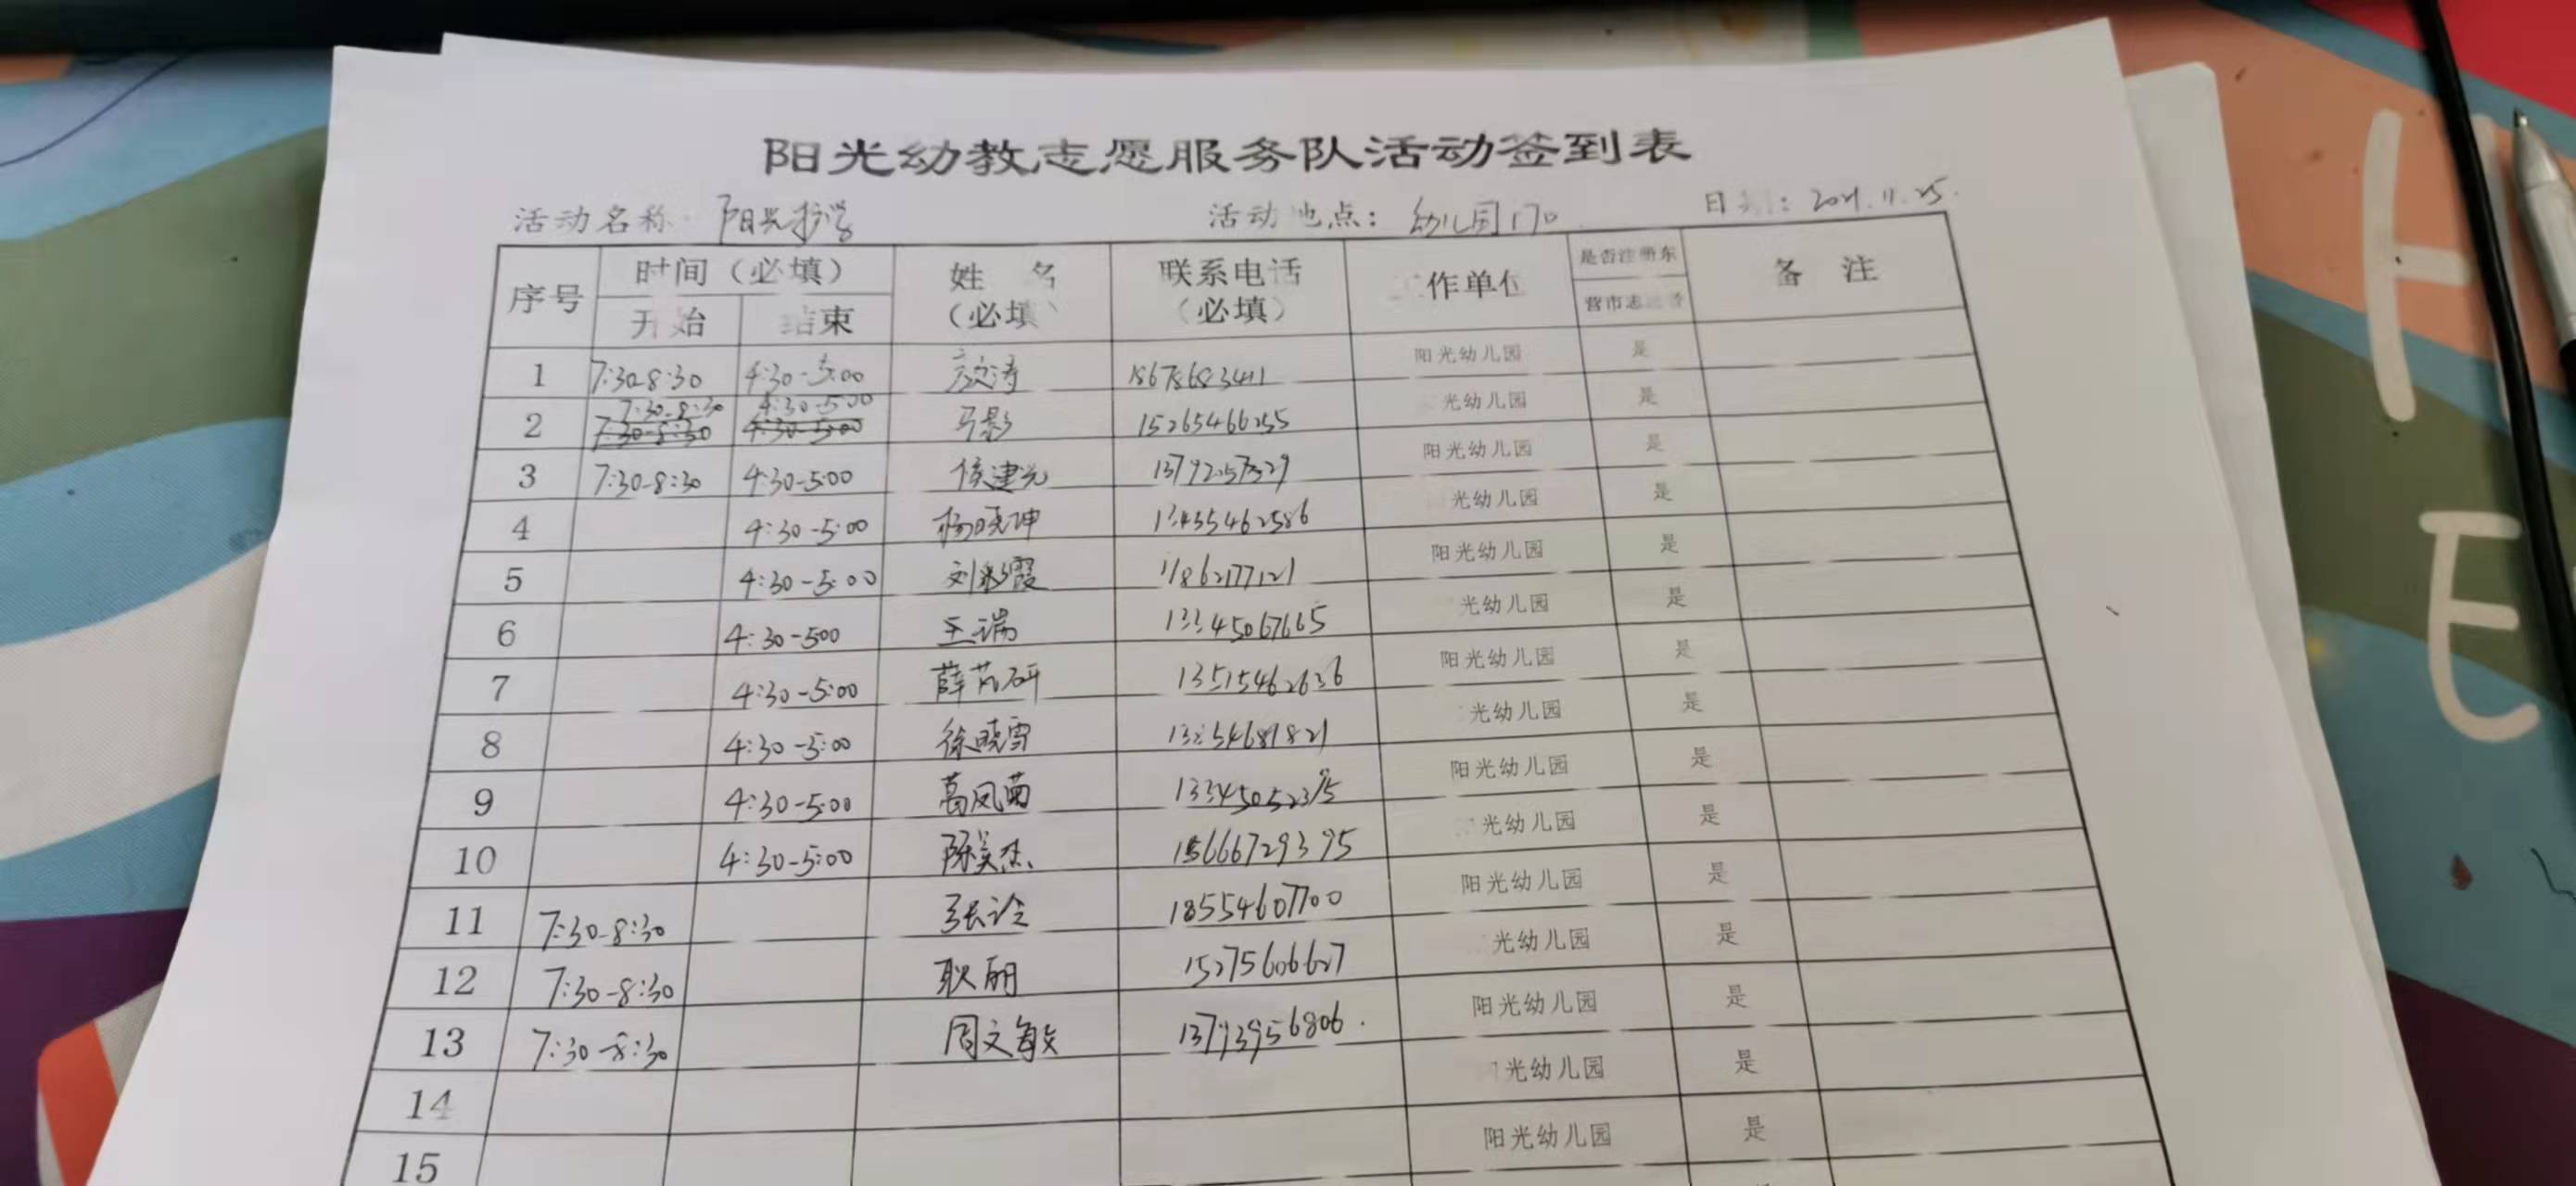 阳光幼教志愿服务队活动签到表
活动名称 阳光护学 活动地点：幼儿园门口 日期：2021.11.25.
序号 时间（必填） 姓名（必填） 联系电话（必填） 工作单位 是否注册东营市志愿者 备注
开始 结束
1 7:30-8:30 4:30-5:00 18678683411 阳光幼儿园 是
2 7:30-8:30 4:30-5:00 马影 15265466255 光幼儿园 是
7:30-8:30 4:30-5:00
3 7:30-8:30 4:30-5:00 侯建光 13792257329 阳光幼儿园 是
4 4:30-5:00 杨晓坤 13435462586 光幼儿园 是
5 4:30-5:00 刘彩霞 阳光幼儿园 是
6 4:30-500 王瑞 13345067665 光幼儿园 是
7 4:30-5:00 薛芃研 13515462636 阳光幼儿园 是
8 4:30-5:00 徐晓雪 光幼儿园 是
9 4:30-5:00 葛凤茵 阳光幼儿园 是
10 4:30-5:00 陈美杰 15666729395 光幼儿园 是
11 7:30-8:30 18554607700 阳光幼儿园 是
12 7:30-8:30 耿丽 15275606627 光幼儿园 是
13 7:30-8:30 周文敏 13793956806. 阳光幼儿园 是
14 光幼儿园 是
15 阳光幼儿园 是
H
E